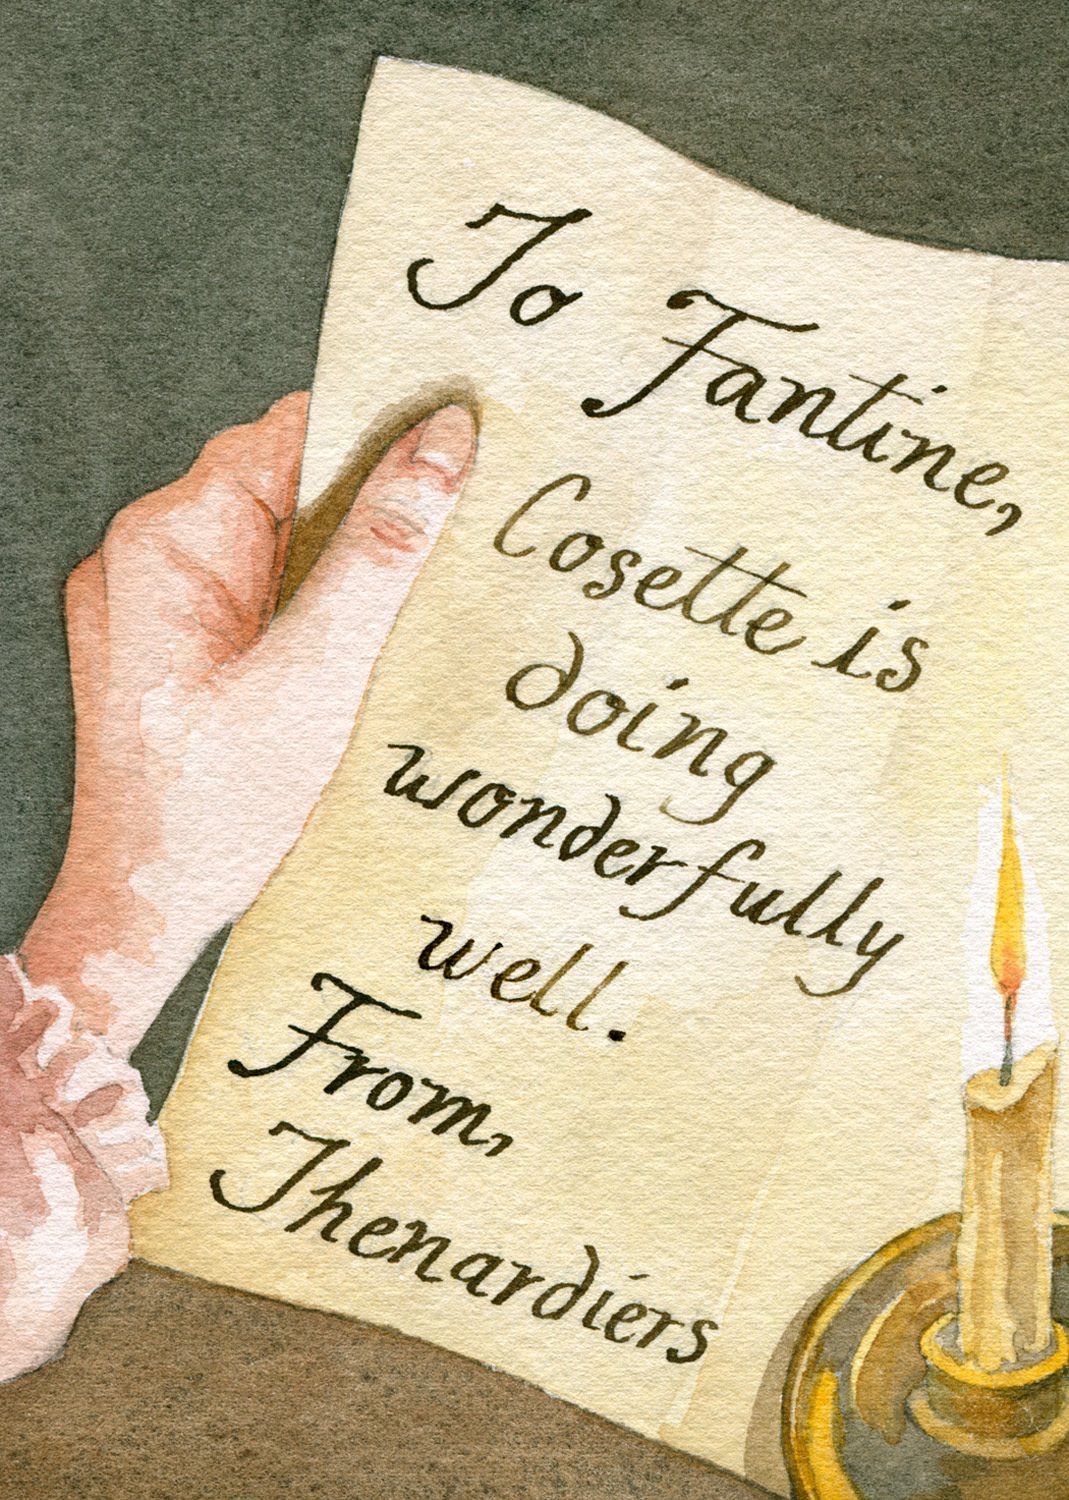 To Fantine,
Cosette is
doing
wonderfully
well.
From,
Thenardiers